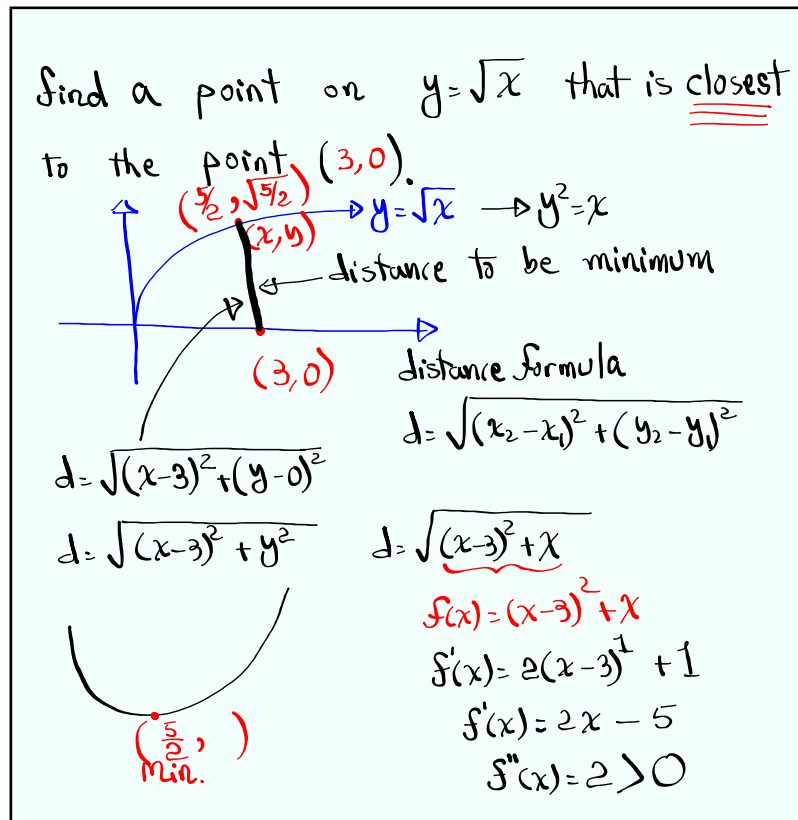 find a point on y=√x that is closest
to the point (3,0).
(5/2, √5/2)
y=√x → y²=x
(x,y)
distance to be minimum
(3,0)
distance formula
d=√(x₂-x₁)²+(y₂-y₁)²
d=√(x-3)²+(y-0)²
d=√(x-3)²+y²
d=√(x-3)²+x
f(x)=(x-3)²+x
f'(x)=2(x-3)¹+1
f'(x)=2x-5
f"(x)=2>0
(5/2, )
Min.